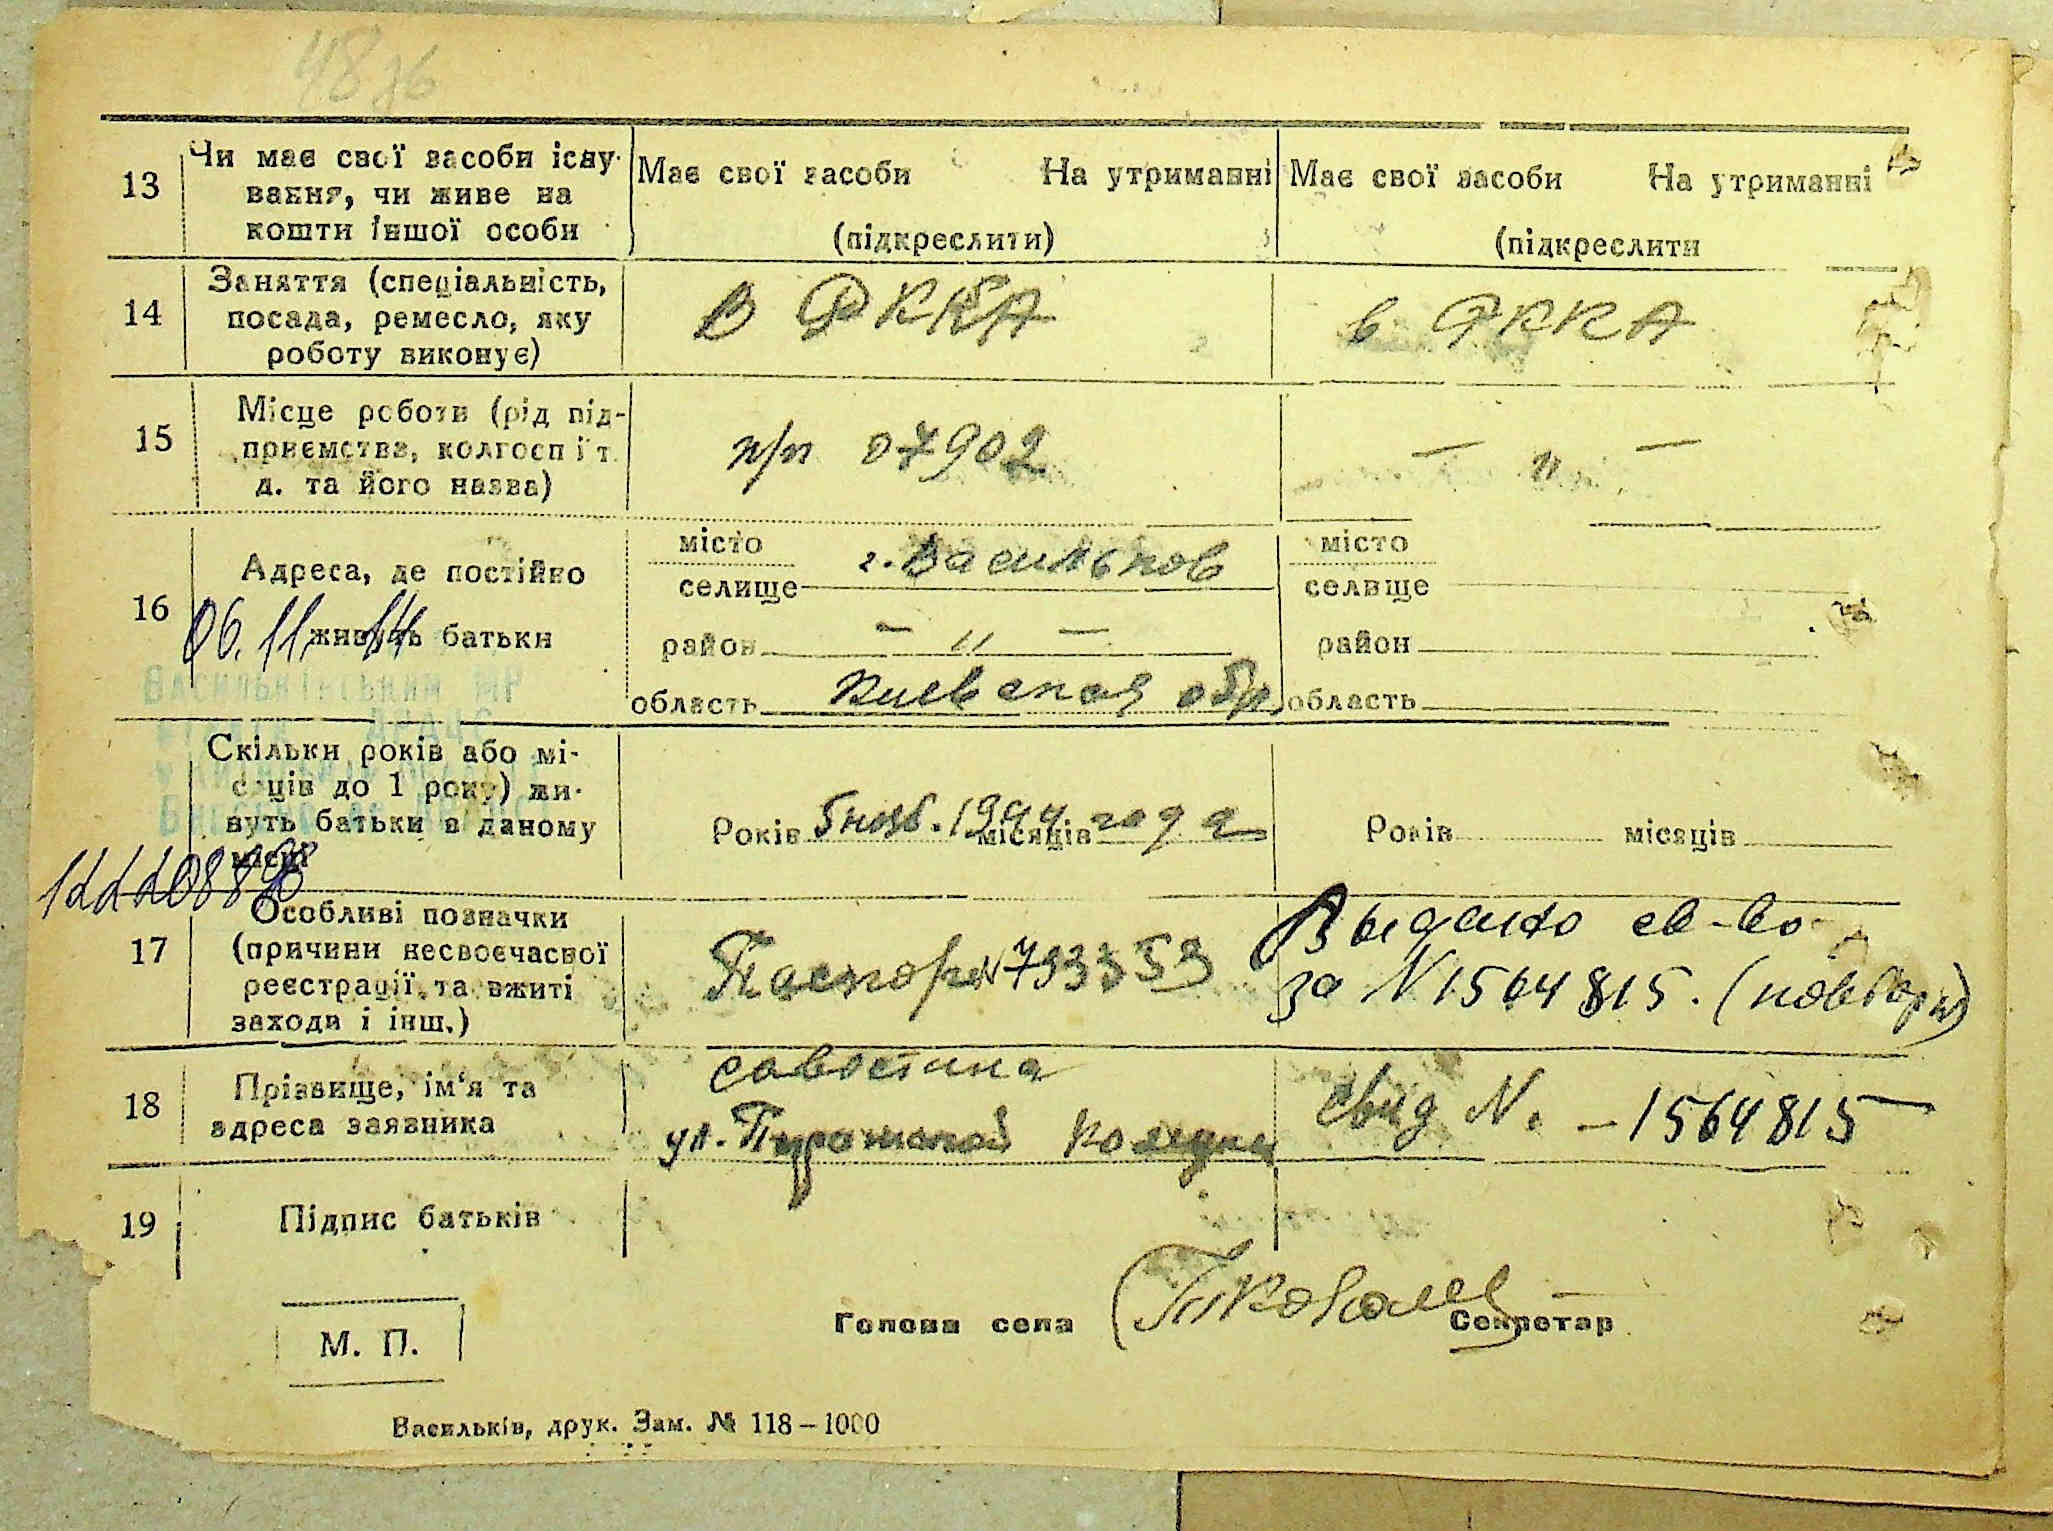 48 зв
13
Чи має свої засоби існу-
вання, чи живе на
кошти іншої особи
Має свої засоби На утриманні
(підкреслити)
Має свої засоби На утриманні
(підкреслити
14
Заняття (спеціальність,
посада, ремесло, яку
роботу виконує)
в РККА
в РККА
15
Місце роботи (рід під-
приємства, колгосп і т.
д. та його назва)
п/п 07902
— " —
16
Адреса, де постійно
живуть батьки
06.11. 14
місто
селище
г. Васильков
район — " —
область Киевская обл.
місто
селище
район
область
Васильківський МР
Скільки років або мі-
сяців до 1 року) жи-
вуть батьки в даному
місці
Років 5 нояб. 1944 місяців года
Років місяців
17
Особливі позначки
(причини несвоєчасної
реєстрації та вжиті
заходи і інш.)
Паспорт № 793353
Выдано св-во
за N 1564815. (повторн)
18
Прізвище, ім'я та
адреса заявника
Савостина
ул.
свид N. - 1564815
19
Підпис батьків
М. П.
Голова села
Секретар
Васильків, друк. Зам. № 118–1000